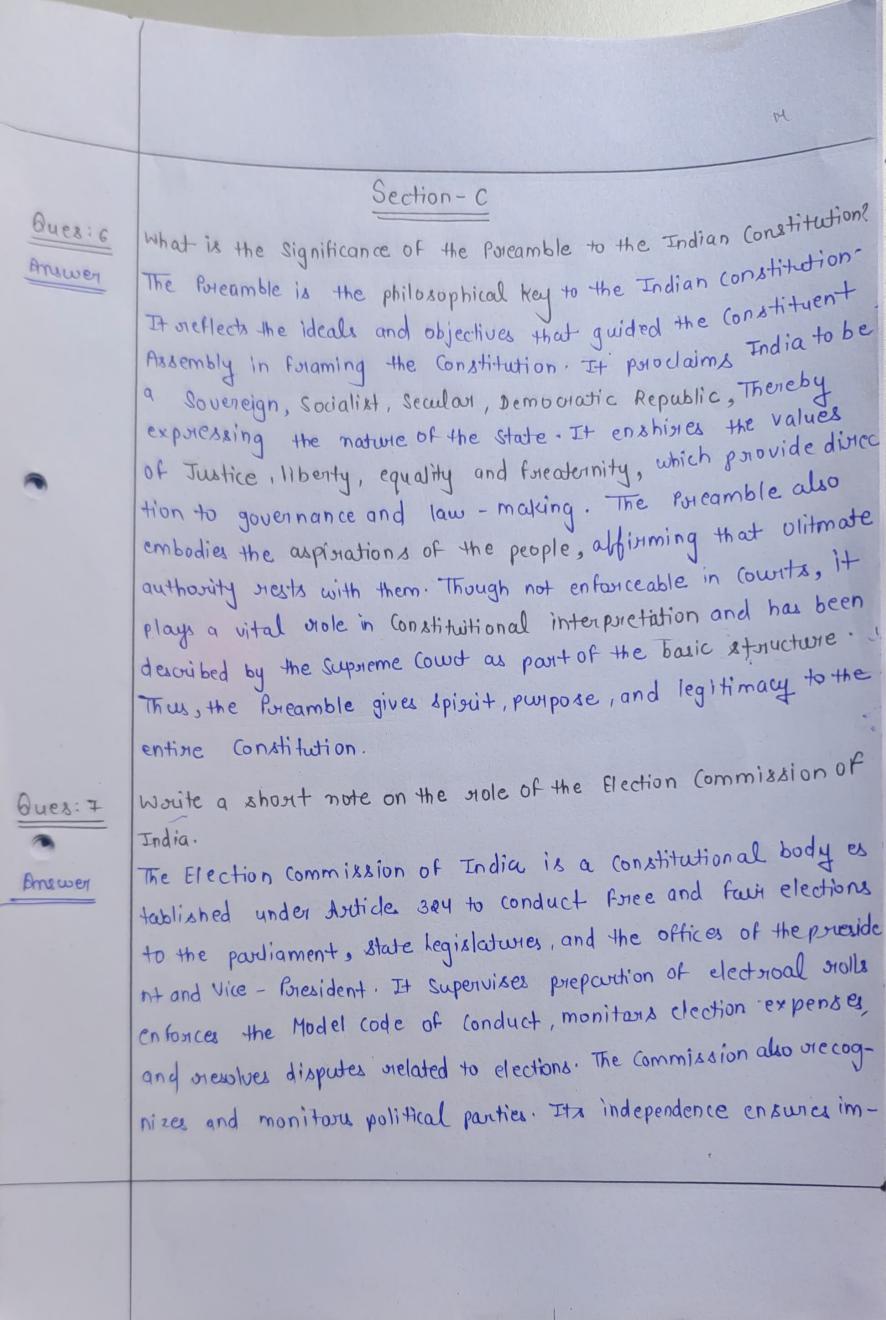 Section - C
Ques: 6 What is the Significance of the Preamble to the Indian Constitution?
Answer The Preamble is the philosophical key to the Indian constitution-
It reflects the ideals and objectives that guided the Constituent
Assembly in framing the Constitution. It proclaims India to be
a Sovereign, Socialist, Secular, Democratic Republic, Thereby
expressing the nature of the state. It enshires the values
of Justice, liberty, equality and freaternity, which provide direc
tion to governance and law - making. The Preamble also
embodies the aspirations of the people, affirming that olitmate
authority rests with them. Though not enforceable in Courts, it
plays a vital role in Constituitional interpretation and has been
described by the Supreme Court as part of the basic structure.
Thus, the Preamble gives spirit, purpose, and legitimacy to the
entire Constitution.
Ques: 7 Write a short note on the role of the Election Commission of
India.
Answer The Election Commission of India is a constitutional body es
tablished under Article 324 to conduct free and fair elections
to the parliament, state legislatures, and the offices of the preside
nt and Vice - President. It supervises prepartion of electroal rolls
enforces the Model code of Conduct, monitors election expenses,
and resolves disputes related to elections. The Commission also recog-
nizes and monitors political parties. Its independence ensures im-